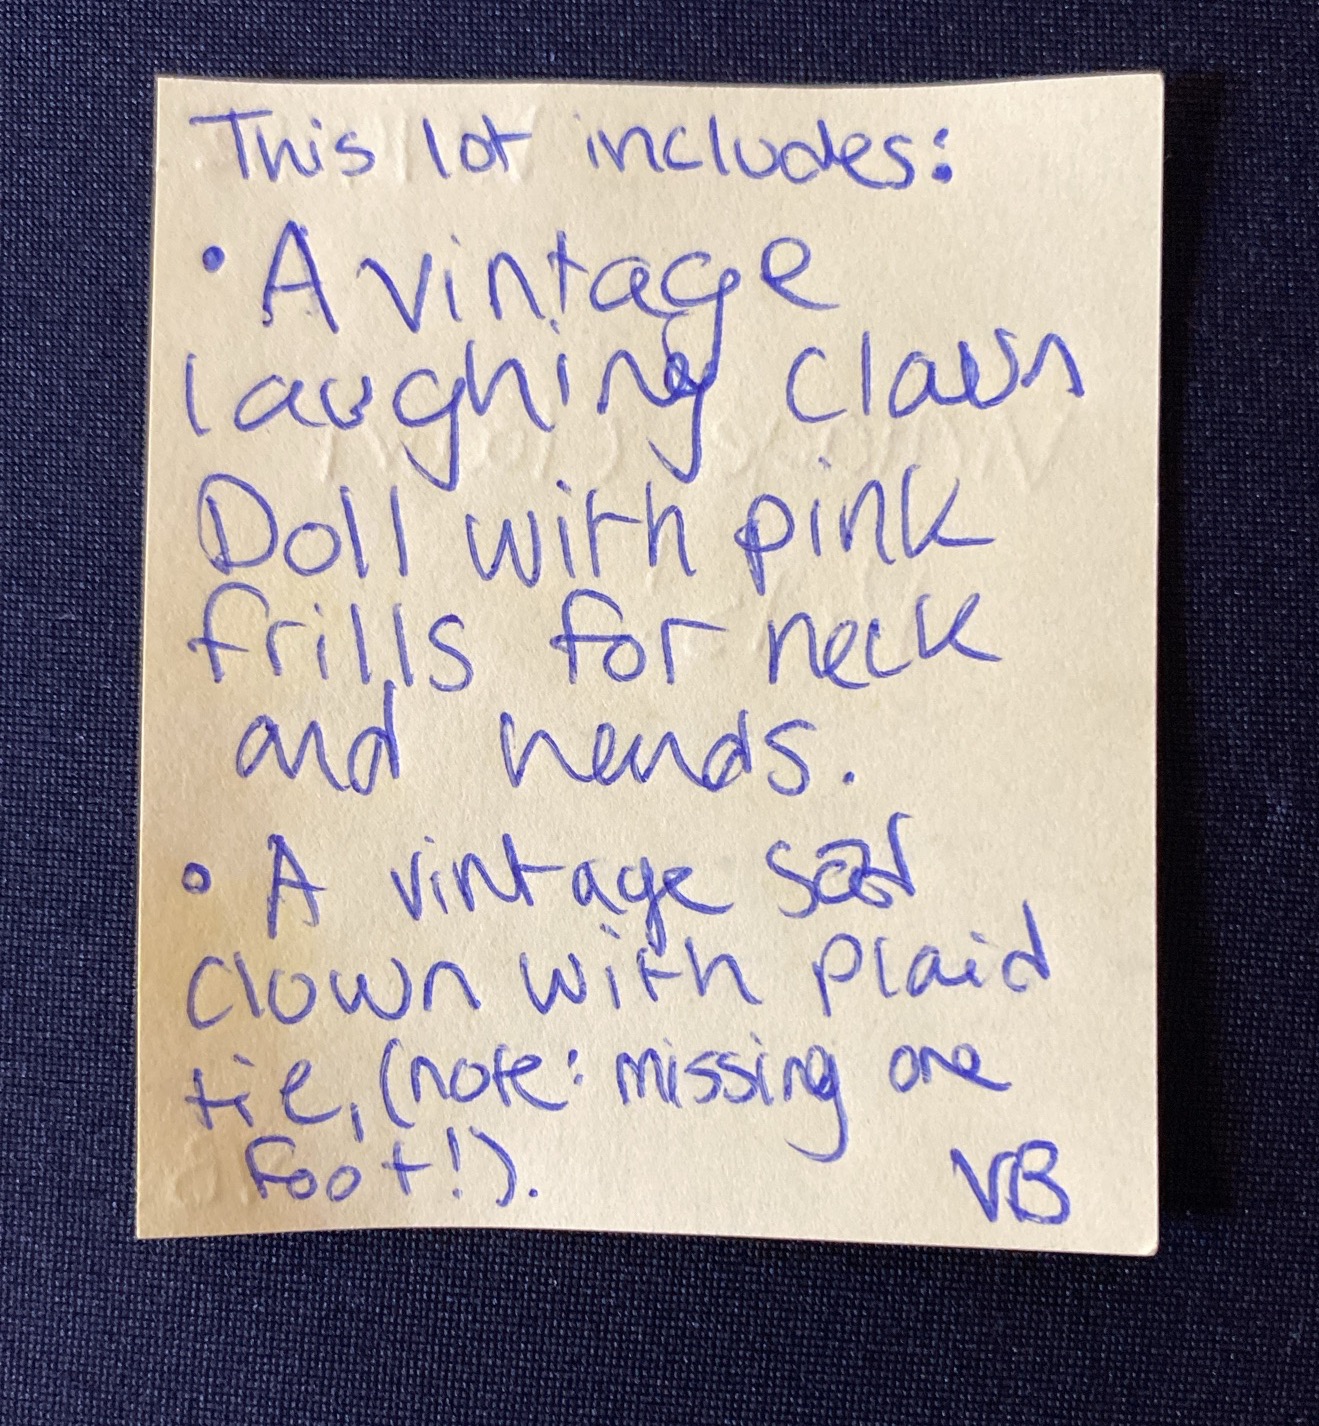 This lot includes:
• A vintage
laughing clown
Doll with pink
frills for neck
and hands.
• A vintage sad
clown with plaid
tie, (note: missing one
foot!). VB